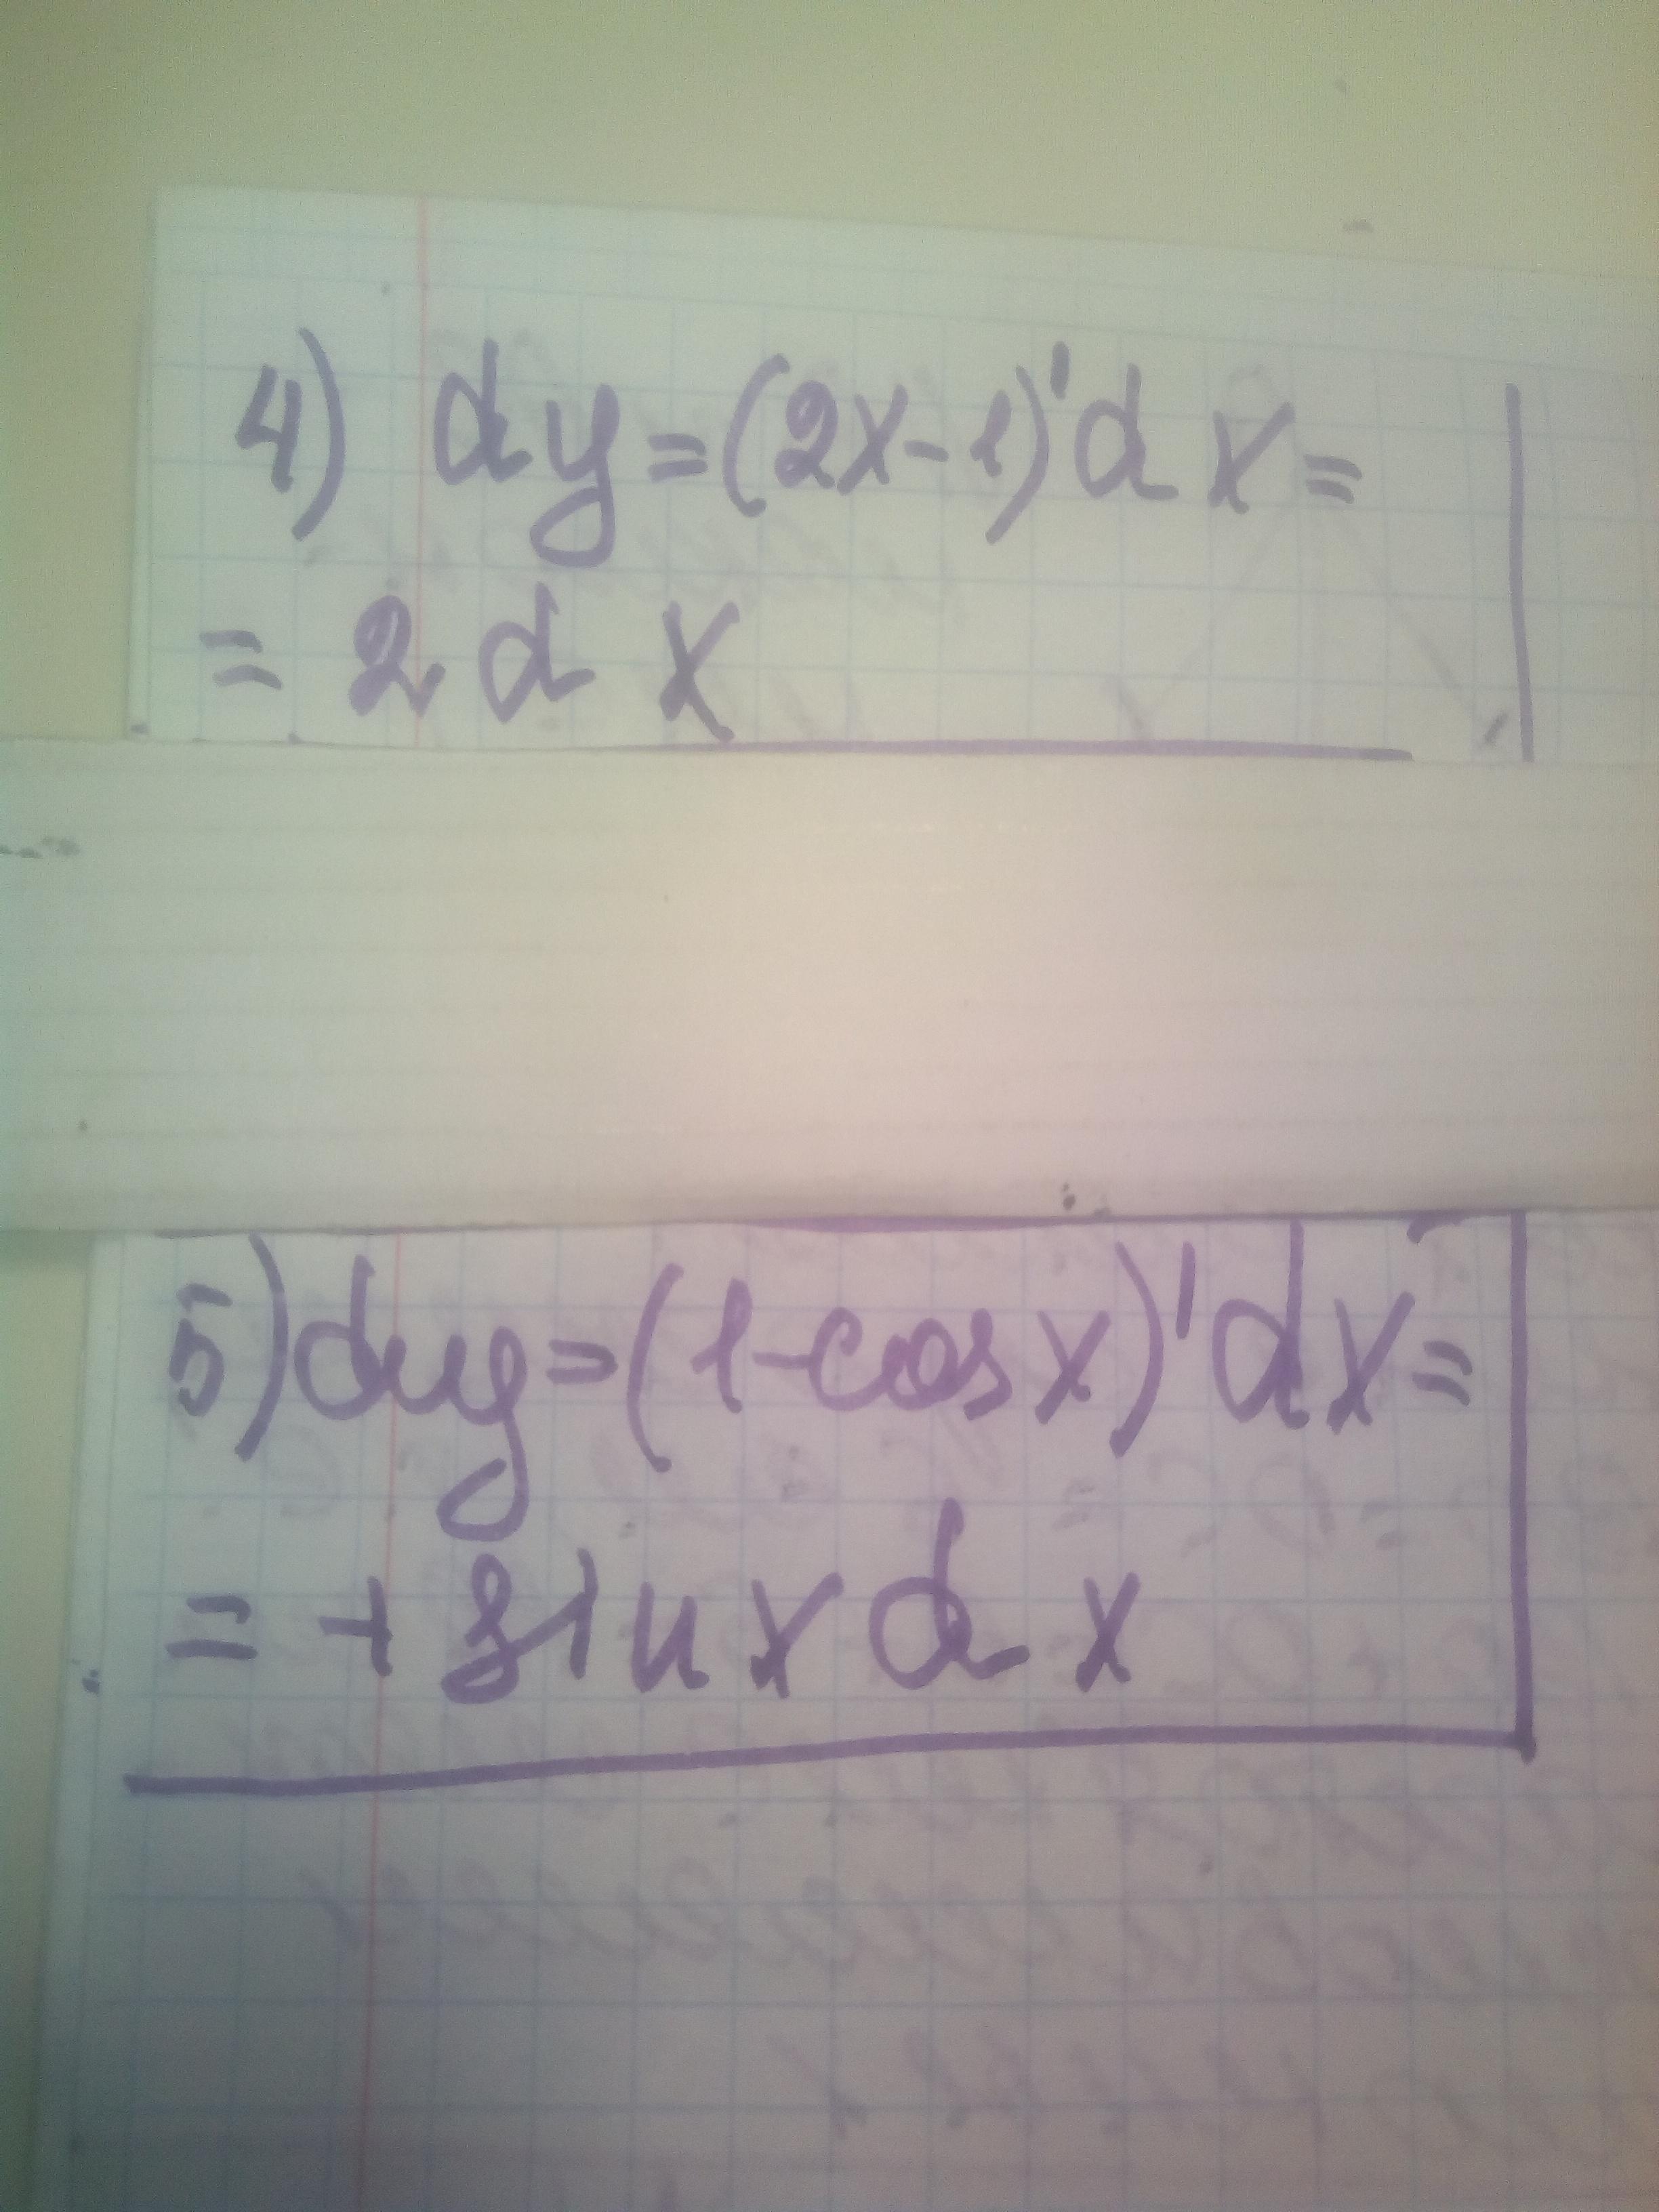 4) dy=(2x-1)'dx=
= 2dx
5) dy=(1-cosx)'dx=
= + sinx dx